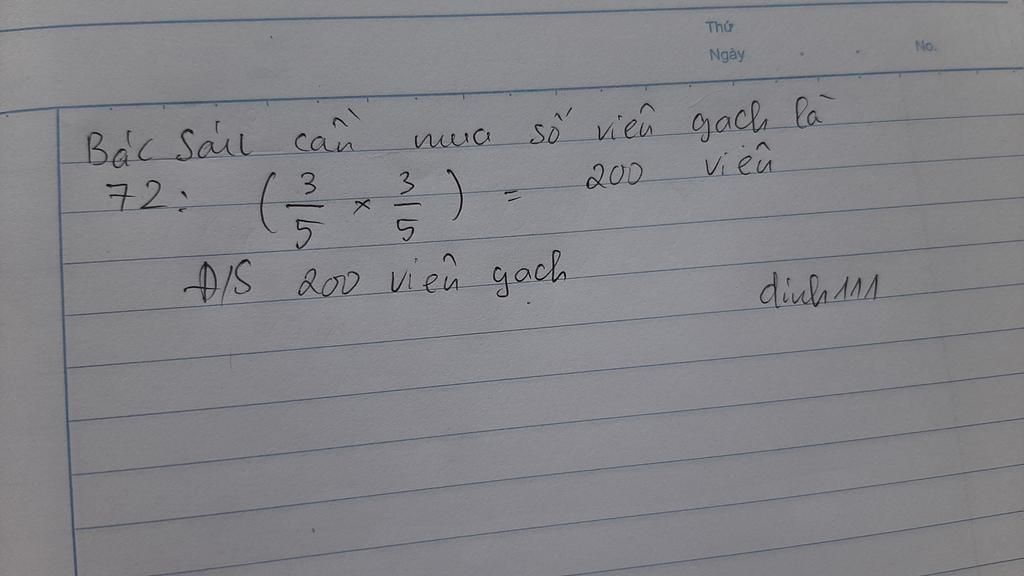 Thứ
Ngày . . No.
Bác Sáu cần mua số viên gạch là
72: (3/5 × 3/5) = 200 viên
Đ/S 200 viên gạch
dinh111